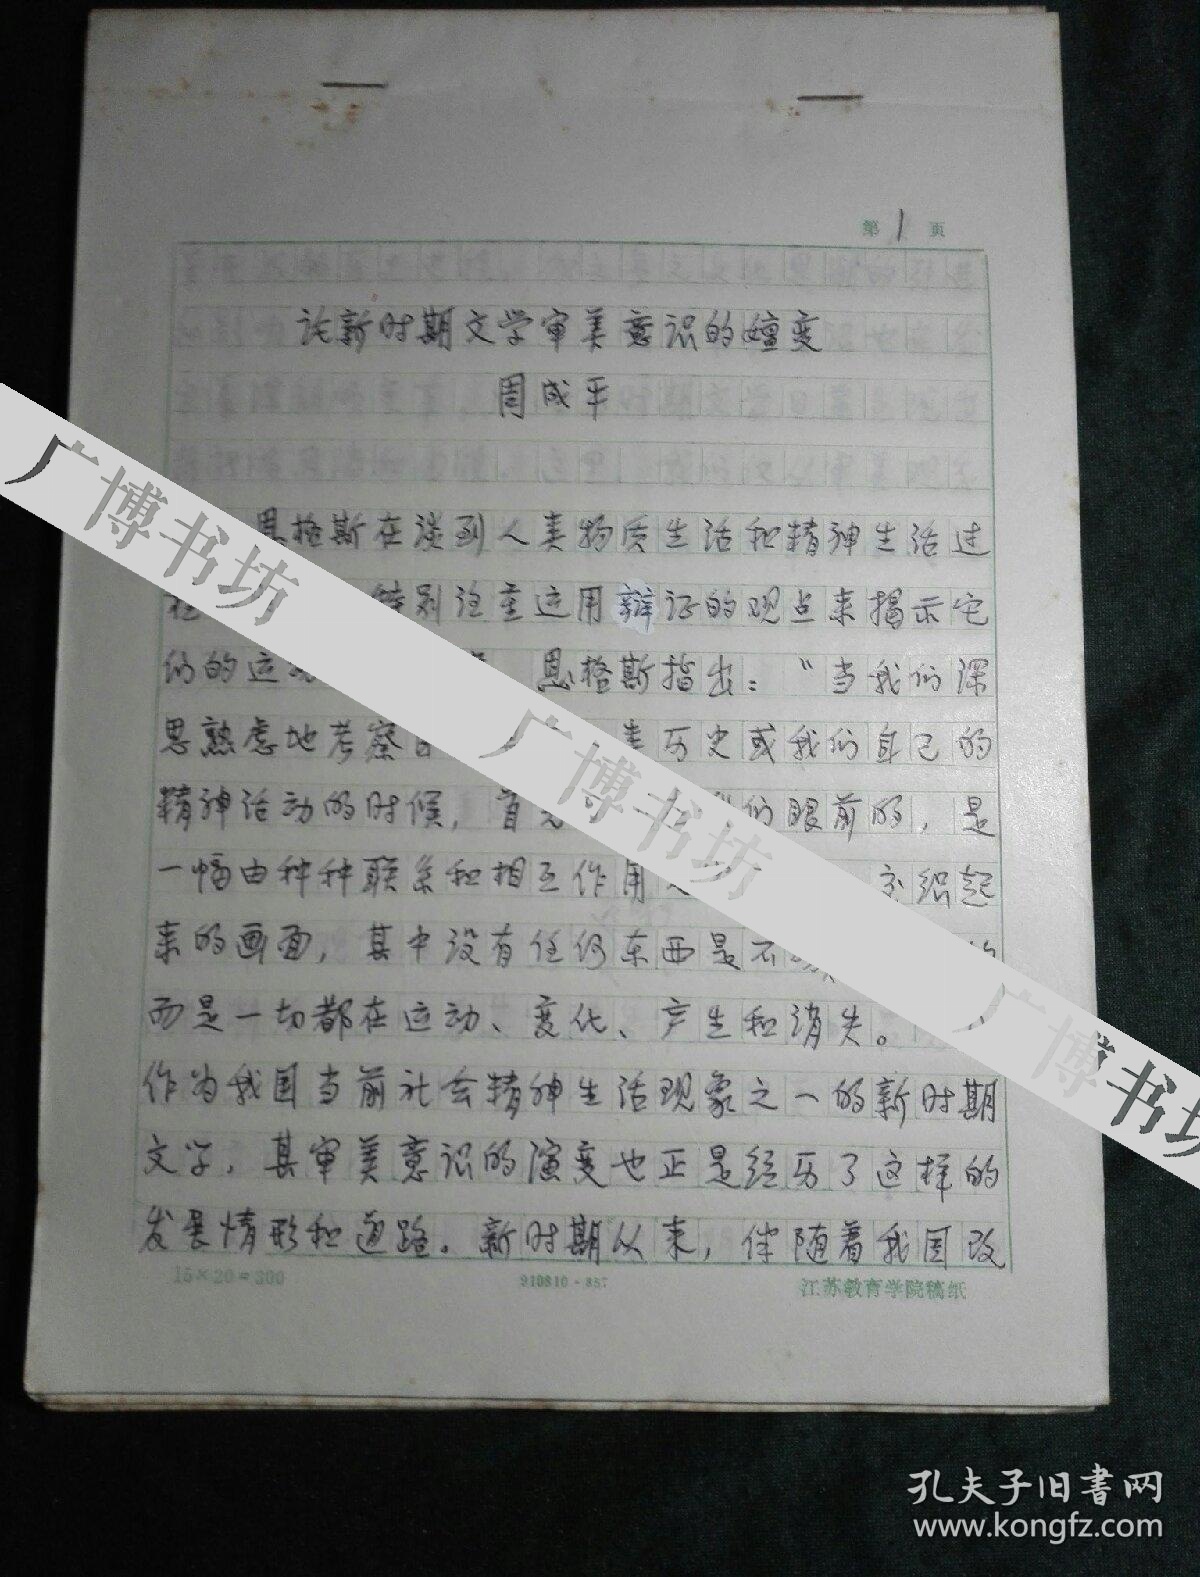 第1页
论新时期文学审美意识的嬗变
周成平
恩格斯在谈到人类物质生活和精神生活过
特别注重运用辩证的观点来揭示它
们的运 恩格斯指出：“当我们深
思熟虑地考察 历史或我们自己的
精神活动的时候，首先 们眼前的，是
一幅由种种联系和相互作用 交织起
来的画面，其中没有任何东西是不
而是一切都在运动、变化、产生和消失。
作为我国当前社会精神生活现象之一的新时期
文学，其审美意识的演变也正是经历了这样的
发展情形和道路。新时期以来，伴随着我国改
15×20=300 910810·857 江苏教育学院稿纸
广博书坊
广博书坊
广博书坊
孔夫子旧书网
www.kongfz.com